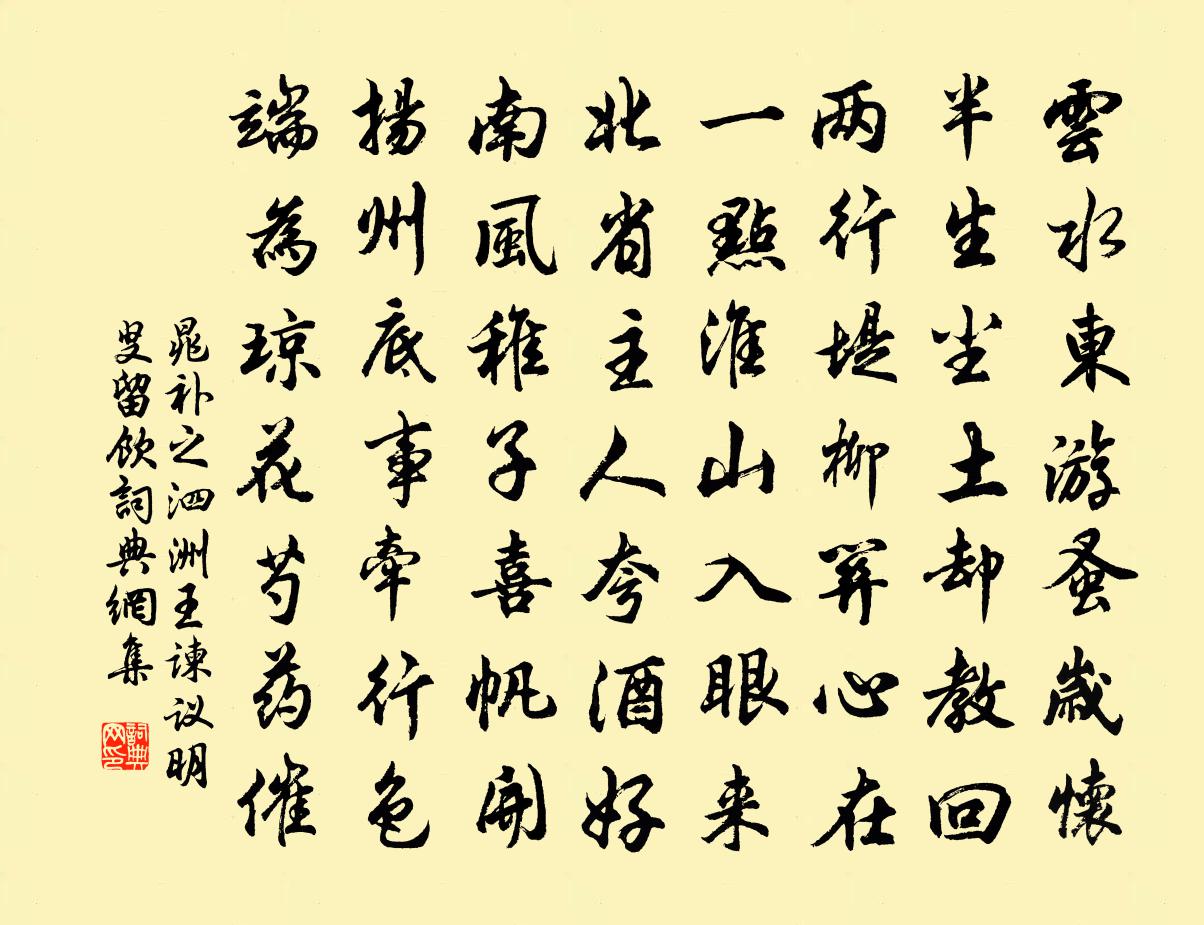 雲水東游蚤歲懷
半生尘土却教回
两行堤柳筭心在
一點淮山入眼来
北省主人夸酒好
南風稚子喜帆開
揚州底事牽行色
端為琼花芍药催
晁补之泗洲王諫议明
叟留飲詞典網集
詞典网印